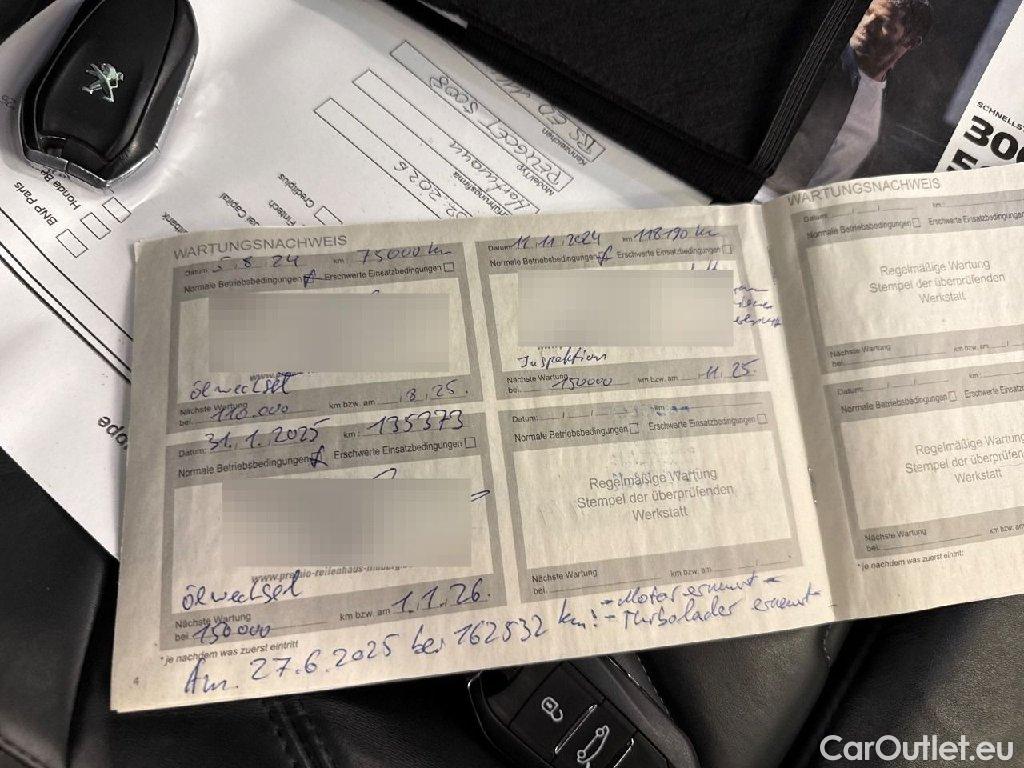 BNP Paris
Honda B
Creditplus
PEUGEOT 5008
SCHNELLST
300
WARTUNGSNACHWEIS
Datum: 5.8.24 km: 75000 km
Normale Betriebsbedingungen Erschwerte Einsatzbedingungen
Ölwechsel
Nächste Wartung
bei: 118.000 km bzw. am .8.25.
Datum: 11.11.2024 km: 118190 km
Normale Betriebsbedingungen Erschwerte Einsatzbedingungen
Inspektion
Nächste Wartung
bei: 150000 km bzw. am .11.25.
Datum: 31.1.2025 km: 135373
Normale Betriebsbedingungen Erschwerte Einsatzbedingungen
Ölwechsel
Nächste Wartung
bei: 150000 km bzw. am 1.1.26.
Datum: / / km:
Normale Betriebsbedingungen Erschwerte Einsatzbedingungen
Regelmäßige Wartung
Stempel der überprüfenden
Werkstatt
Nächste Wartung
bei: km bzw. am / /
*je nachdem was zuerst eintritt
Am. 27.6.2025 bei 162532 km! - Motor erneuert -
- Turbolader erneuert -
4
WARTUNGSNACHWEIS
Datum: / / km:
Normale Betriebsbedingungen Erschwerte Einsatzbedingungen
Regelmäßige Wartung
Stempel der überprüfenden
Werkstatt
Nächste Wartung
bei: km bzw. am
Datum: / /
Normale Betriebsbedingungen Erschwerte Einsatz
Regelmäßige Wartung
Stempel der überprüfenden
Werkstatt
Nächste Wartung
bei: km bzw. am
*je nachdem was zuerst eintritt
CarOutlet.eu